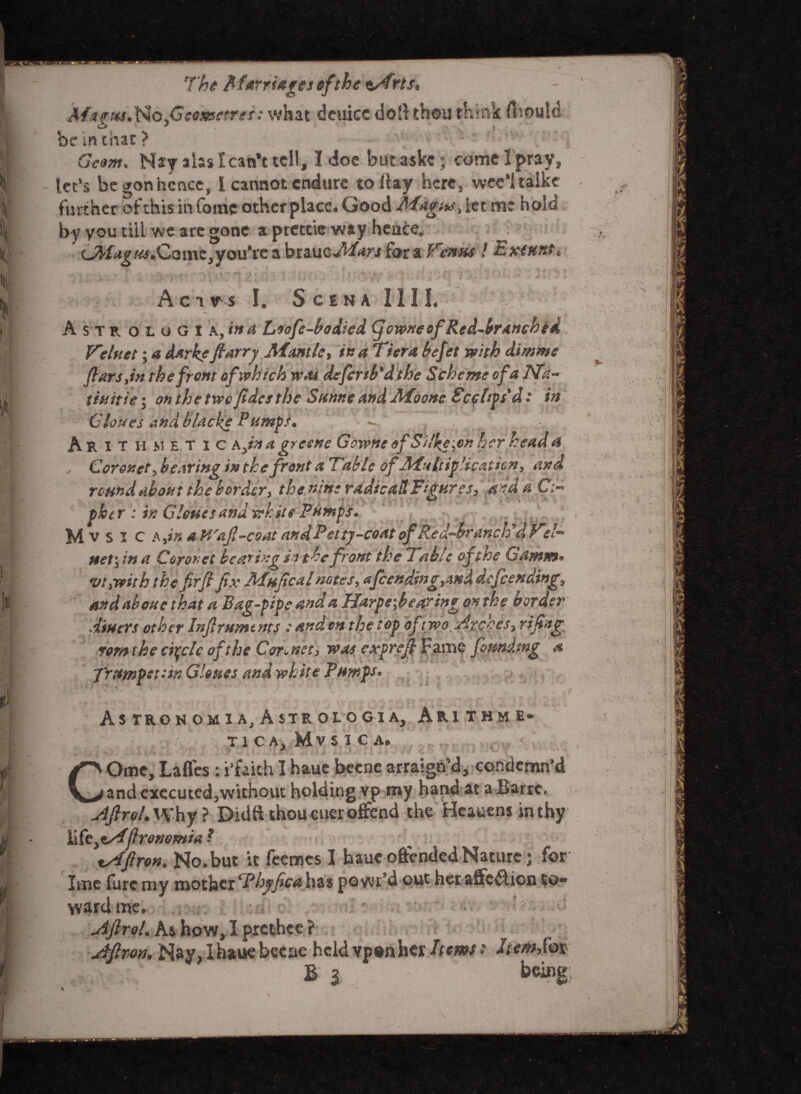 The Marriages of the Arts.
Magus. No, Geometres: what deuice dost thou think should
be in that?
Geom. Nay alas I can't tell, I doe but aske; come I pray,
let's be gon hence, I cannot endure to stay here, wee'l talke
further of this in some other place. Good Magus, let me hold
by you till we are gone a prettie way hence.
Magus. Come, you're a braue Mars for a Venus! Exeunt.
Actvs I. Scena IIII.
Astrologia, in a Loose-bodied Gowne of Red-branched
Veluet; a darke starry Mantle, in a Tiera beset with dimme
stars, in the front of which was describ'd the Scheme of a Na-
tiuitie; on the two sides the Sunne and Moone Ecclips'd: in
Gloues and blacke Pumps.
Arithmetica, in a greene Gowne of Silke; on her head a
Coronet, bearing in the front a Table of Multiplication, and
round about the border, the nine radicall Figures, and a Ci-
pher: in Gloues and white Pumps.
Mvsica, in a Wast-coat and Petty-coat of Red-branch'd Vel-
uet; in a Coronet bearing in the front the Table of the Gamm-
vt, with the first six Musical notes, ascending, and descending,
and aboue that a Bag-pipe and a Harpe; bearing on the border
diuers other Instruments: and on the top of two Arches, rising
rom the circle of the Coronet, was exprest Fame sounding a
Trumpet: in Gloues and white Pumps.
Astronomia, Astrologia, Arithme-
tica, Mvsica.
COme, Lasses: i'faith I haue beene arraign'd, condemn'd
and executed, without holding vp my hand at a Barre.
Astrol. Why? Didst thou euer offend the Heauens in thy
life, Astronomia?
Astron. No. but it seemes I haue offended Nature; for
Ime sure my mother Physica has powr'd out her affection to-
ward me.
Astrol. As how, I prethee?
Astron. Nay, I haue beene held vpon her Items: Item, for
B 3 being